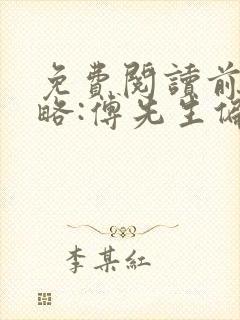 免費閱讀前
略:傅先生偏
李某紅